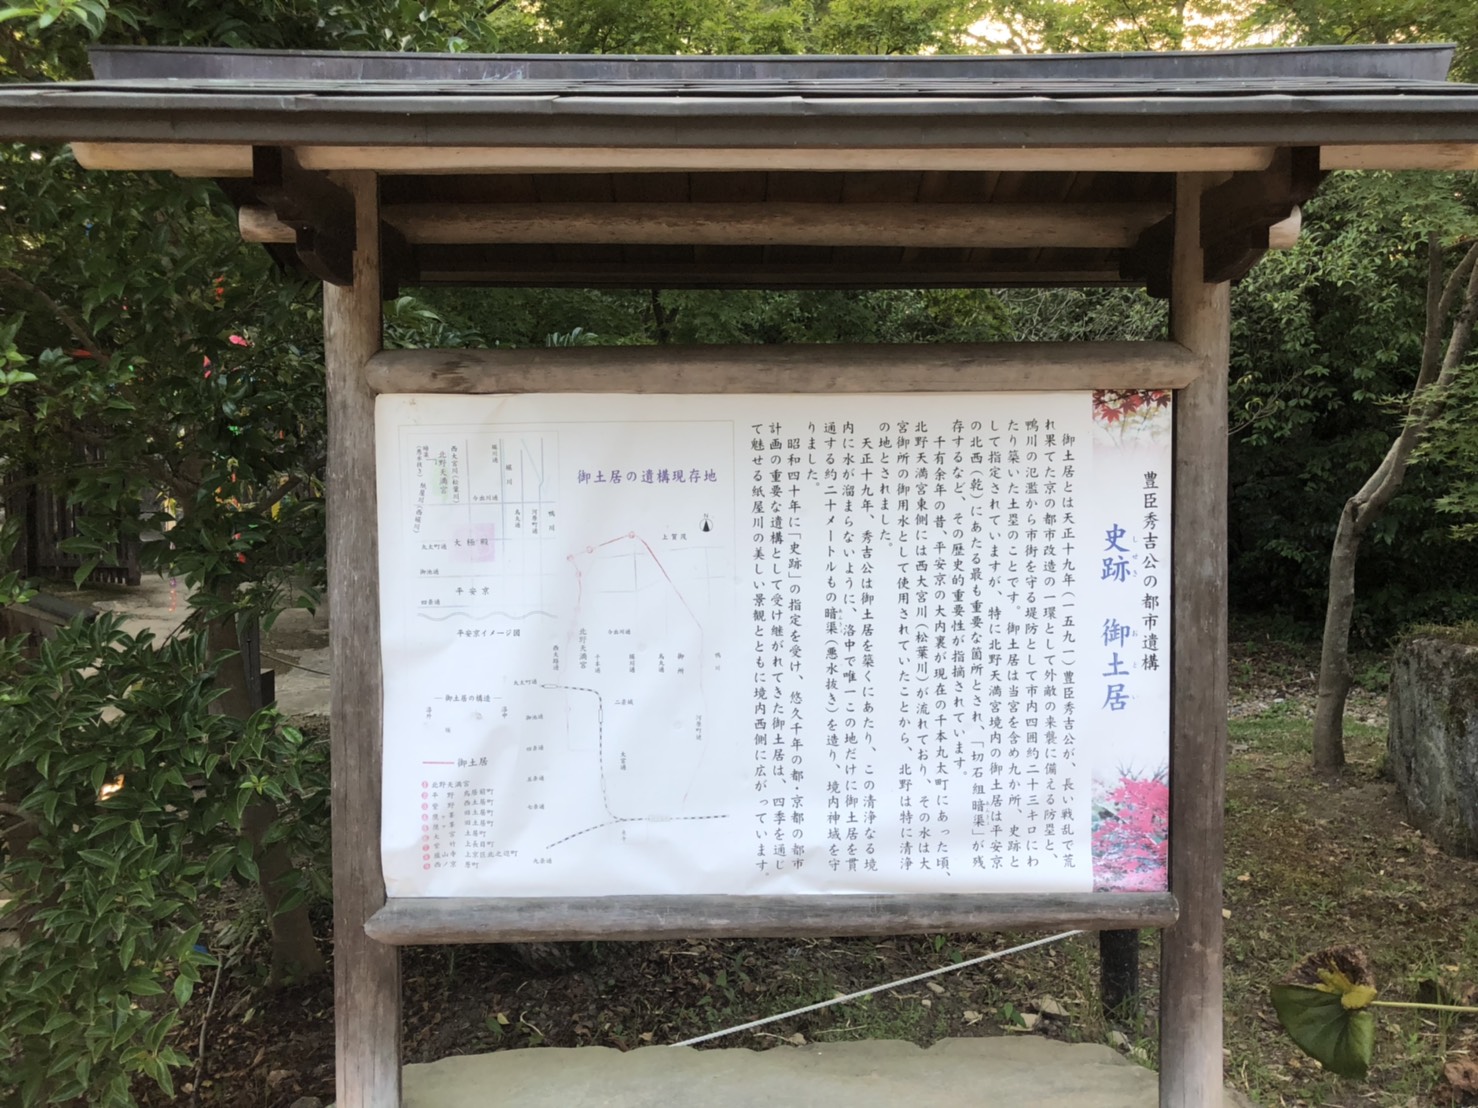 豊臣秀吉公の都市遺構
史跡 御土居
しせき おどい
御土居とは天正十九年(一五九一)豊臣秀吉公が、長い戦乱で荒
れ果てた京の都市改造の一環として外敵の来襲に備える防塁と、
鴨川の氾濫から市街を守る堤防として市内四囲約二十三キロにわ
たり築いた土塁のことです。御土居は当宮を含め九か所、史跡と
して指定されていますが、特に北野天満宮境内の御土居は平安京
の北西(乾)にあたる最も重要な箇所とされ、「切石組暗渠」が残
存するなど、その歴史的重要性が指摘されています。
千有余年の昔、平安京の大内裏が現在の千本丸太町にあった頃、
北野天満宮東側には西大宮川(松葉川)が流れており、その水は大
宮御所の御用水として使用されていたことから、北野は特に清浄
の地とされました。
天正十九年、秀吉公は御土居を築くにあたり、この清浄なる境
内に水が溜まらないように、洛中で唯一この地だけに御土居を貫
通する約二十メートルもの暗渠(悪水抜き)を造り、境内神域を守
りました。
昭和四十年に「史跡」の指定を受け、悠久千年の都・京都の都市
計画の重要な遺構として受け継がれてきた御土居は、四季を通じ
て魅せる紙屋川の美しい景観とともに境内西側に広がっています。
御土居の遺構現存地
上賀茂
鴨川
河原町通
烏丸通
堀川
堀川通
西大宮川(松葉川)
北野天満宮
紙屋川(西堀川)
今出川通
大極殿
丸太町通
御池通
平安京
四条通
平安京イメージ図
今出川通
鴨川
御所
烏丸通
堀川通
千本通
北野天満宮
西大路通
丸太町通
二条城
大宮通
河原町通
御池通
四条通
五条通
七条通
九条通
御土居の構造
洛外
洛中
堀
御土居
北野天満宮